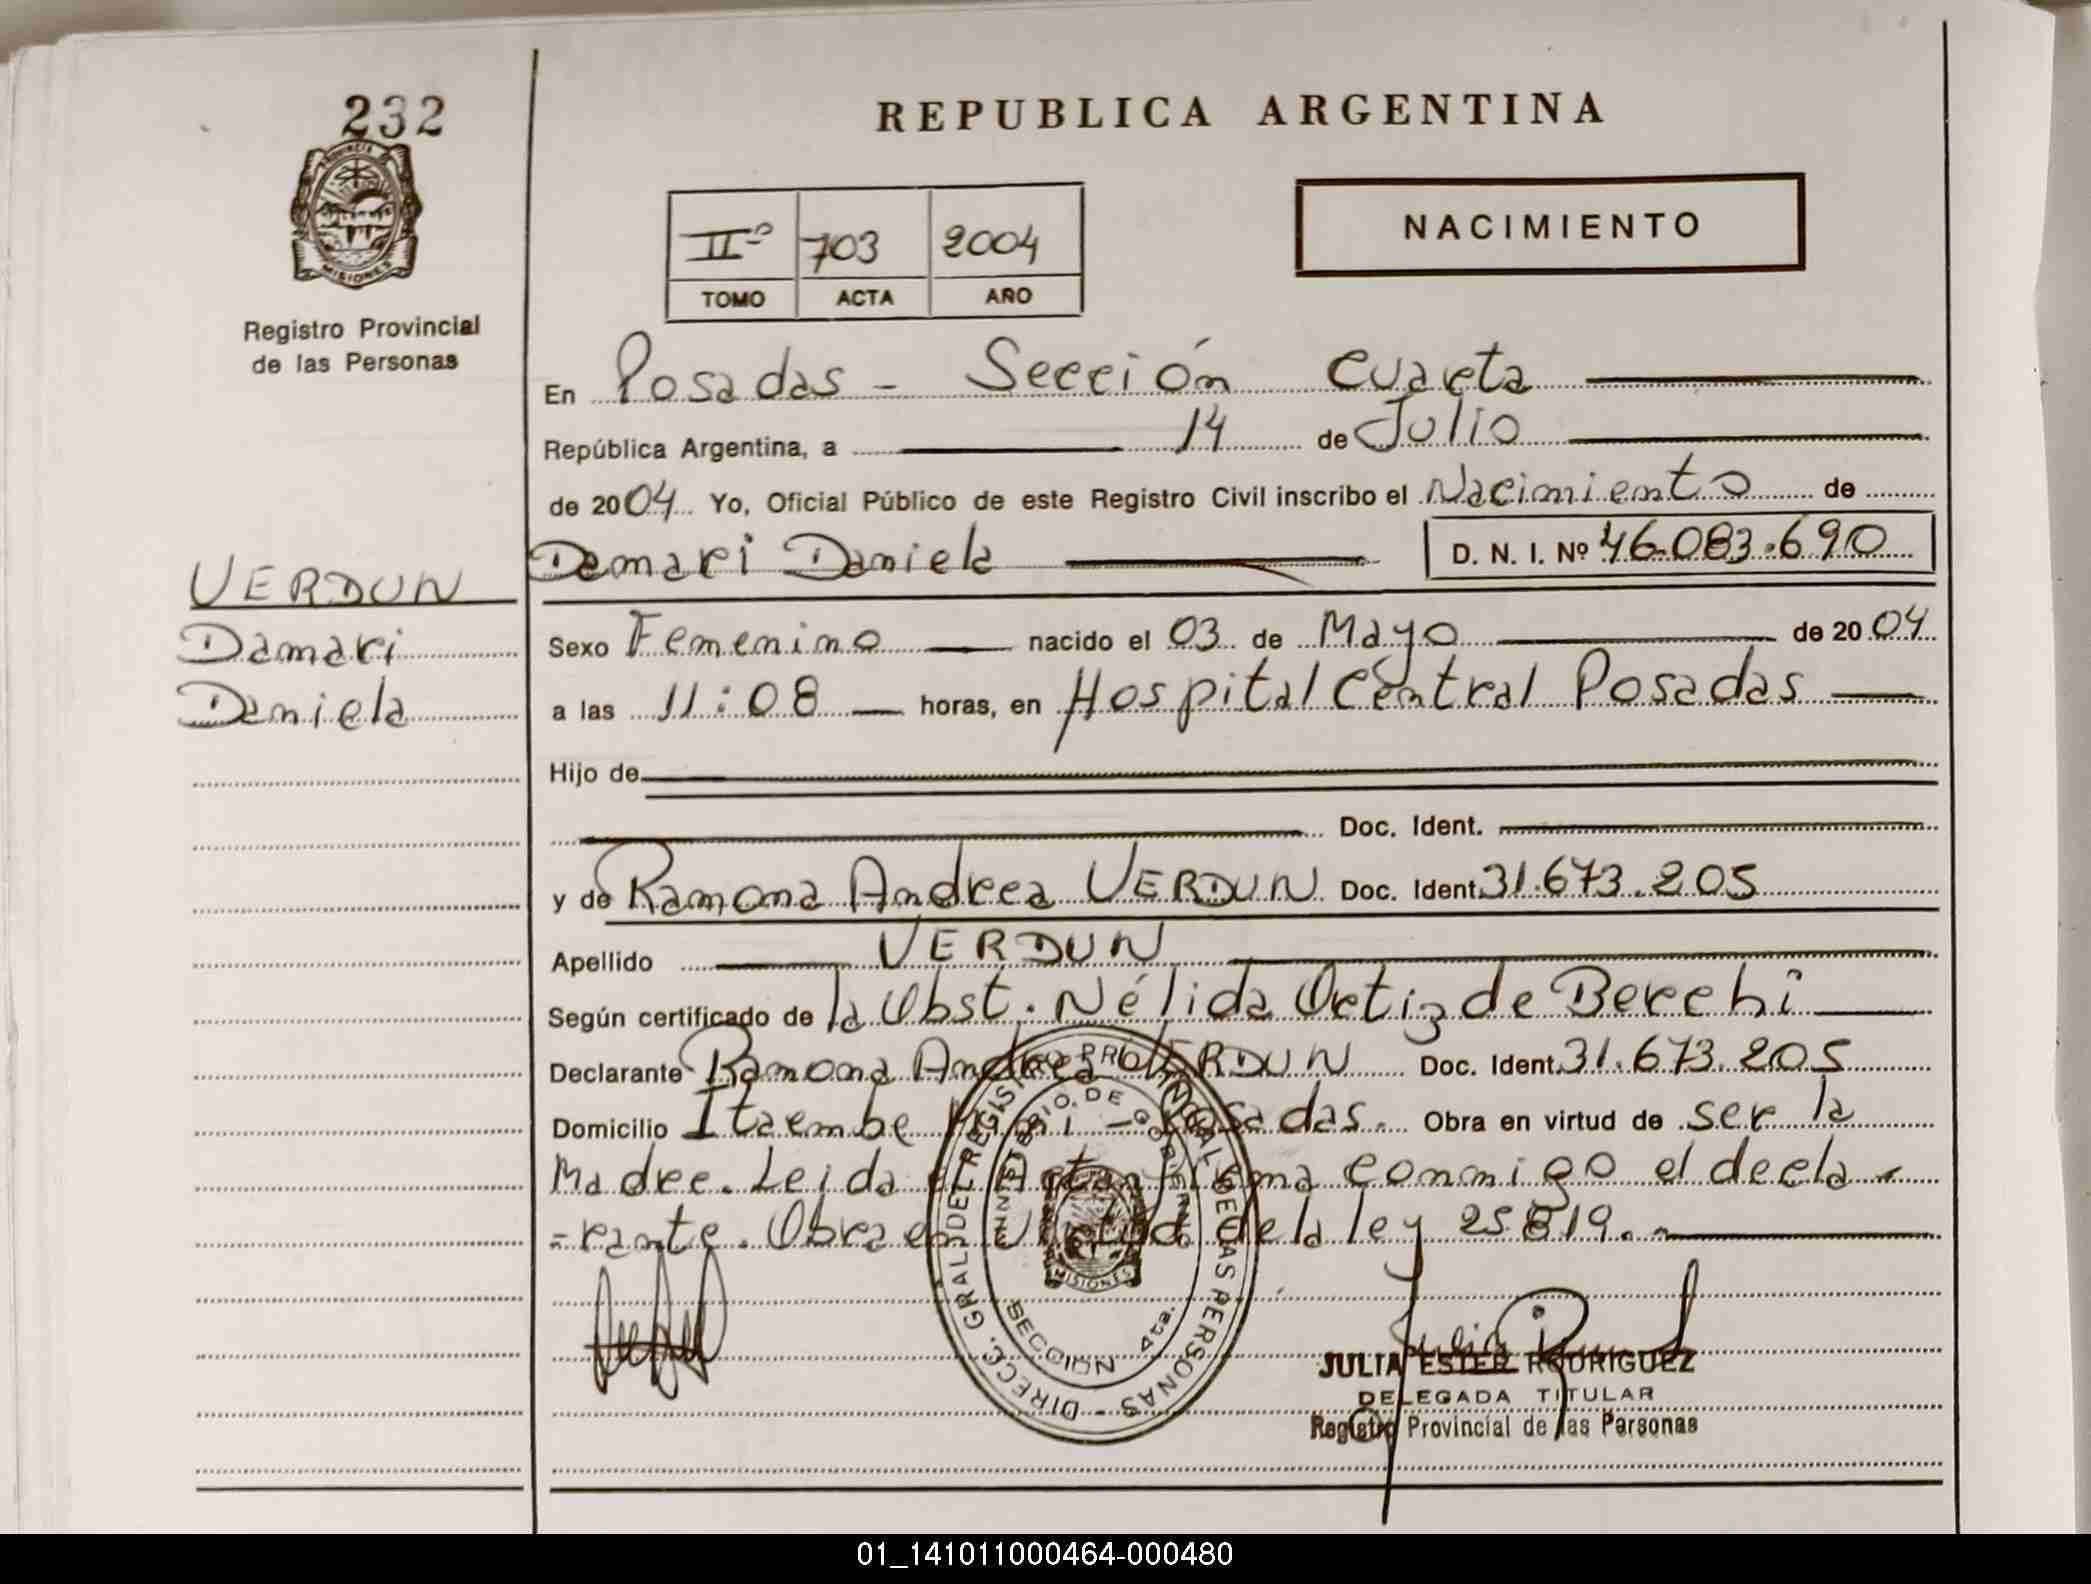 232
PROVINCIA
MISIONES
Registro Provincial
de las Personas
VERDUN
Damari
Daniela
REPUBLICA ARGENTINA
IIº 703 2004
TOMO ACTA AÑO
NACIMIENTO
En Posadas - Sección Cuarta
República Argentina, a 14 de Julio
de 2004 Yo, Oficial Público de este Registro Civil inscribo el Nacimiento de
Damari Daniela D. N. I. Nº 46.083.690
Sexo Femenino nacido el 03 de Mayo de 2004
a las 11:08 horas, en Hospital Central Posadas
Hijo de
Doc. Ident.
y de Ramona Andrea VERDUN Doc. Ident. 31.673.205
Apellido VERDUN
Según certificado de la Obst. Nélida Ortiz de Berchi
Declarante Ramona Andrea VERDUN Doc. Ident. 31.673.205
Domicilio Itaembe Mini - Posadas. Obra en virtud de ser la
Madre. Leida el Acta firma conmigo el decla-
-rante. Obra en Virtud de la ley 25819.-
DIRECC. GRAL. DEL REGISTRO PROVINCIAL DE LAS PERSONAS -
MINISTERIO DE GOBIERNO
MISIONES
SECCION 4ta.
JULIA ESTER RODRIGUEZ
DELEGADA TITULAR
Registro Provincial de las Personas
01_141011000464-000480